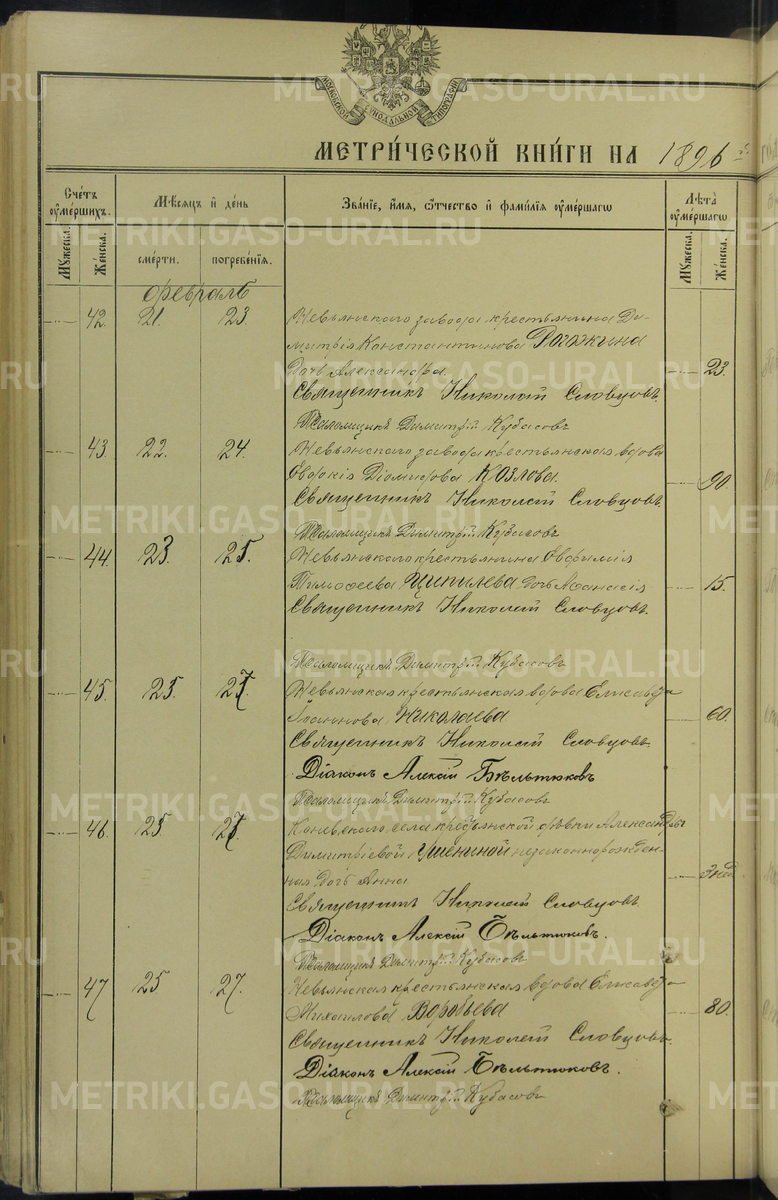 МОСКОВСКОЙ СУНОДАЛЬНОЙ ТИПОГРАФІИ
METRIKI.GASO-URAL.RU
МЕТРИ́ЧЕСКОЙ КНИ́ГИ НА 1896
Сче́тъ ѹме́ршихъ.
Мѣ́сяцъ и҆ де́нь
Зва́нїе, и҆́мѧ, ѻ҆́тчество и҆ фами́лїѧ ѹме́ршагѡ
Лѣ́та ѹме́ршагѡ
Му́жеска.
Же́нска.
сме́рти.
погребе́нїѧ.
Му́жеска.
Же́нска.
февраль
42. 21. 23. Невьянскаго завода крестьянина Ди-
митрія Константинова Рагожкина
Дочь Александра 23.
Священникъ Николай Словцовъ.
Псаломщикъ Димитрій Кубасовъ
43 22. 24. Невьянскаго завода крестьянская вдова
Евдокія Діомидова Козлова 90
Священникъ Николай Словцовъ.
Псаломщикъ Димитрій Кубасовъ.
44. 23. 25. Невьянскаго крестьянина Евфимія
Тимофеева Щипилева дочь Афанасія 15.
Священникъ Николай Словцовъ.
Псаломщикъ Димитрій Кубасовъ
45. 25. 27. Невьянская крестьянская вдова Елисавѳа
Іоаннова Николаева 60.
Священникъ Николай Словцовъ.
Діаконъ Алексій Бѣльтюковъ
Псаломщикъ Димитрій Кубасовъ
46. 25 27. Коневскаго села крестьянской дѣвки Александры
Димитріевой незаконнорожден-
ная дочь Анна 3 нед
Священникъ Николай Словцовъ.
Діаконъ Алексій Бѣльтюковъ.
Псаломщикъ Димитрій Кубасовъ
47 25 27. Невьянская крестьянская вдова Елисавѳа
Михаилова Воробьева 80.
Священникъ Николай Словцовъ.
Діаконъ Алексій Бѣльтюковъ.
Псаломщикъ Димитрій Кубасовъ